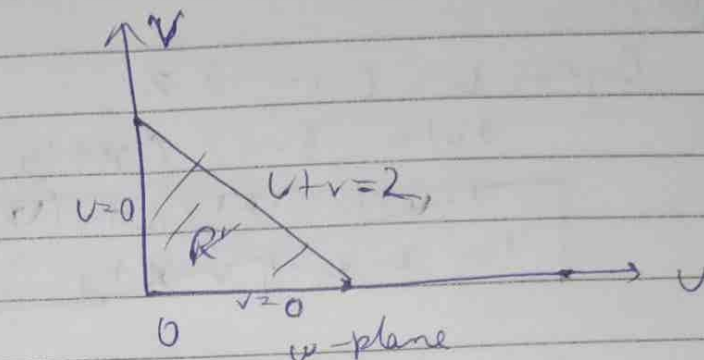 V
u+v=2,
u=0
R'
v=0
U
0
w-plane